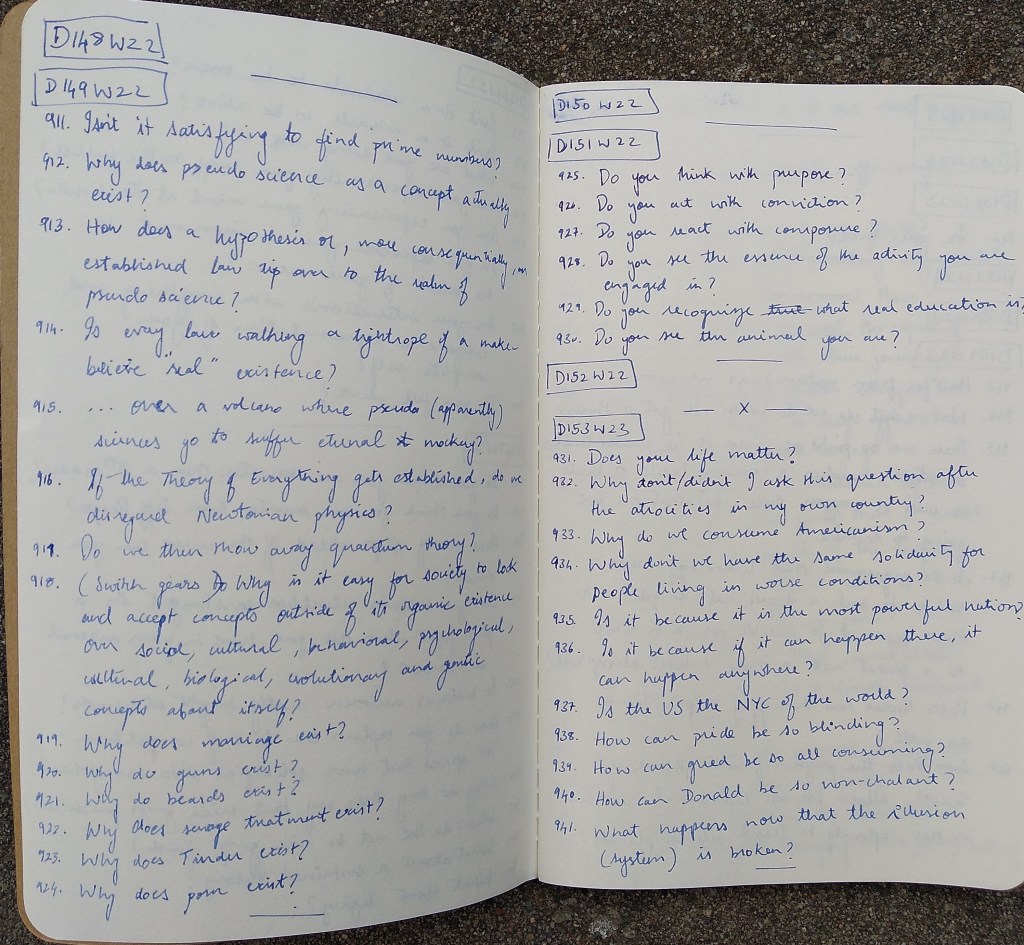 D148W22
D149W22
911. Isn't it satisfying to find prime numbers?
912. Why does pseudo science as a concept actually
exist?
913. How does a hypothesis or, more consequentially, an
established law tip over to the realm of
pseudo science?
914. Is every law walking a tightrope of a make-
believe "real" existence?
915. ... over a volcano where pseudo (apparently)
sciences go to suffer eternal mockery?
916. If the Theory of Everything gets established, do we
disregard Newtonian physics?
917. Do we then throw away quantum theory?
918. (Switch gears) Why is it easy for society to look
and accept concepts outside of its organic existence
over social, cultural, behavioral, psychological,
cultural, biological, evolutionary and genetic
concepts about itself?
919. Why does marriage exist?
920. Why do guns exist?
921. Why do beards exist?
922. Why does sewage treatment exist?
923. Why does Tinder exist?
924. Why does porn exist?
D150W22
D151W22
925. Do you think with purpose?
926. Do you act with conviction?
927. Do you react with composure?
928. Do you see the essence of the activity you are
engaged in?
929. Do you recognize true what real education is?
930. Do you see the animal you are?
D152W22
X
D153W23
931. Does your life matter?
932. Why don't/didn't I ask this question after
the atrocities in my own country?
933. Why do we consume Americanism?
934. Why don't we have the same solidarity for
people living in worse conditions?
935. Is it because it is the most powerful nation?
936. Is it because if it can happen there, it
can happen anywhere?
937. Is the US the NYC of the world?
938. How can pride be so blinding?
939. How can greed be so all consuming?
940. How can Donald be so non-chalant?
941. What happens now that the illusion
(system) is broken?